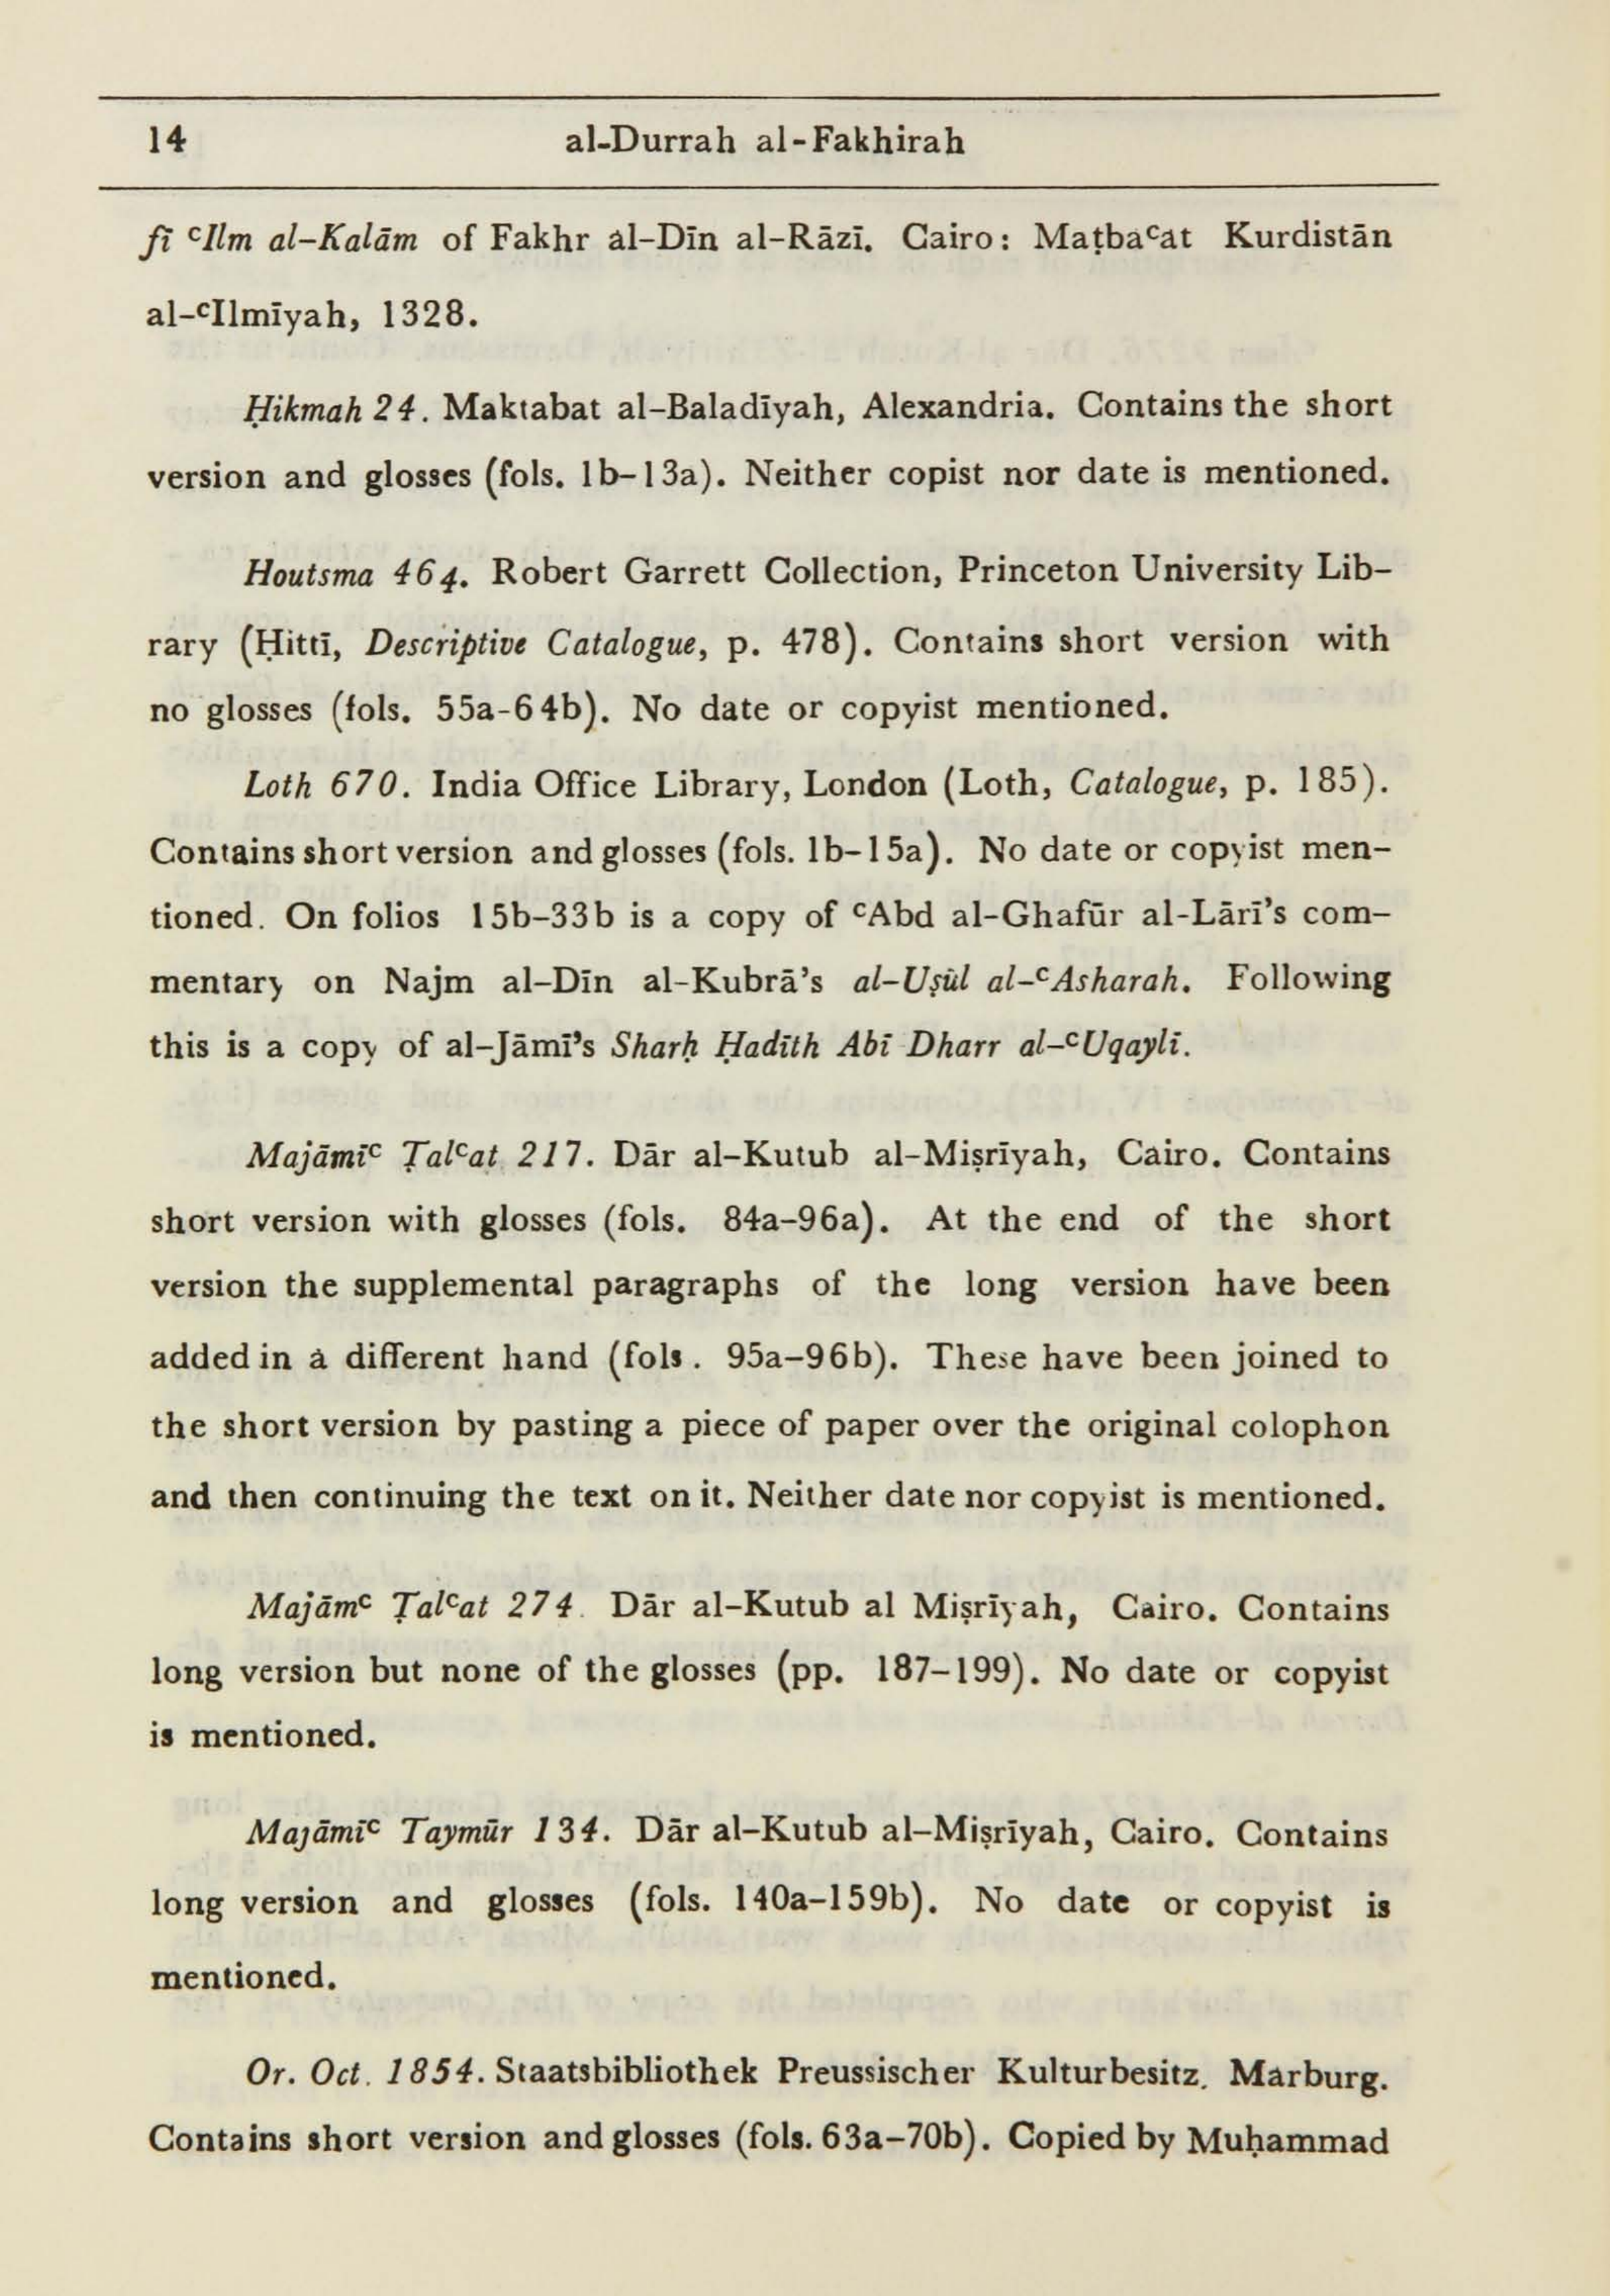 14 al-Durrah al-Fakhirah
fī ᶜIlm al-Kalām of Fakhr al-Dīn al-Rāzī. Cairo: Maṭbaᶜat Kurdistān
al-ᶜIlmīyah, 1328.
Ḥikmah 24. Maktabat al-Baladīyah, Alexandria. Contains the short
version and glosses (fols. 1b-13a). Neither copist nor date is mentioned.
Houtsma 464. Robert Garrett Collection, Princeton University Lib-
rary (Ḥittī, Descriptive Catalogue, p. 478). Contains short version with
no glosses (fols. 55a-64b). No date or copyist mentioned.
Loth 670. India Office Library, London (Loth, Catalogue, p. 185).
Contains short version and glosses (fols. 1b-15a). No date or copyist men-
tioned. On folios 15b-33b is a copy of ᶜAbd al-Ghafūr al-Lārī's com-
mentary on Najm al-Dīn al-Kubrā's al-Uṣūl al-ᶜAsharah. Following
this is a copy of al-Jāmī's Sharḥ Ḥadīth Abī Dharr al-ᶜUqaylī.
Majāmīᶜ Ṭalᶜat 217. Dār al-Kutub al-Miṣrīyah, Cairo. Contains
short version with glosses (fols. 84a-96a). At the end of the short
version the supplemental paragraphs of the long version have been
added in a different hand (fols. 95a-96b). These have been joined to
the short version by pasting a piece of paper over the original colophon
and then continuing the text on it. Neither date nor copyist is mentioned.
Majāmᶜ Ṭalᶜat 274. Dār al-Kutub al Miṣrīyah, Cairo. Contains
long version but none of the glosses (pp. 187-199). No date or copyist
is mentioned.
Majāmīᶜ Taymūr 134. Dār al-Kutub al-Miṣrīyah, Cairo. Contains
long version and glosses (fols. 140a-159b). No date or copyist is
mentioned.
Or. Oct. 1854. Staatsbibliothek Preussischer Kulturbesitz. Marburg.
Contains short version and glosses (fols. 63a-70b). Copied by Muḥammad